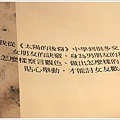 我從《太陽的後裔》中學到很多交
女朋友的訣竅，身為男朋友的我
怎麼樣察言觀色、做出怎麼樣的
貼心舉動，才能討女友歡